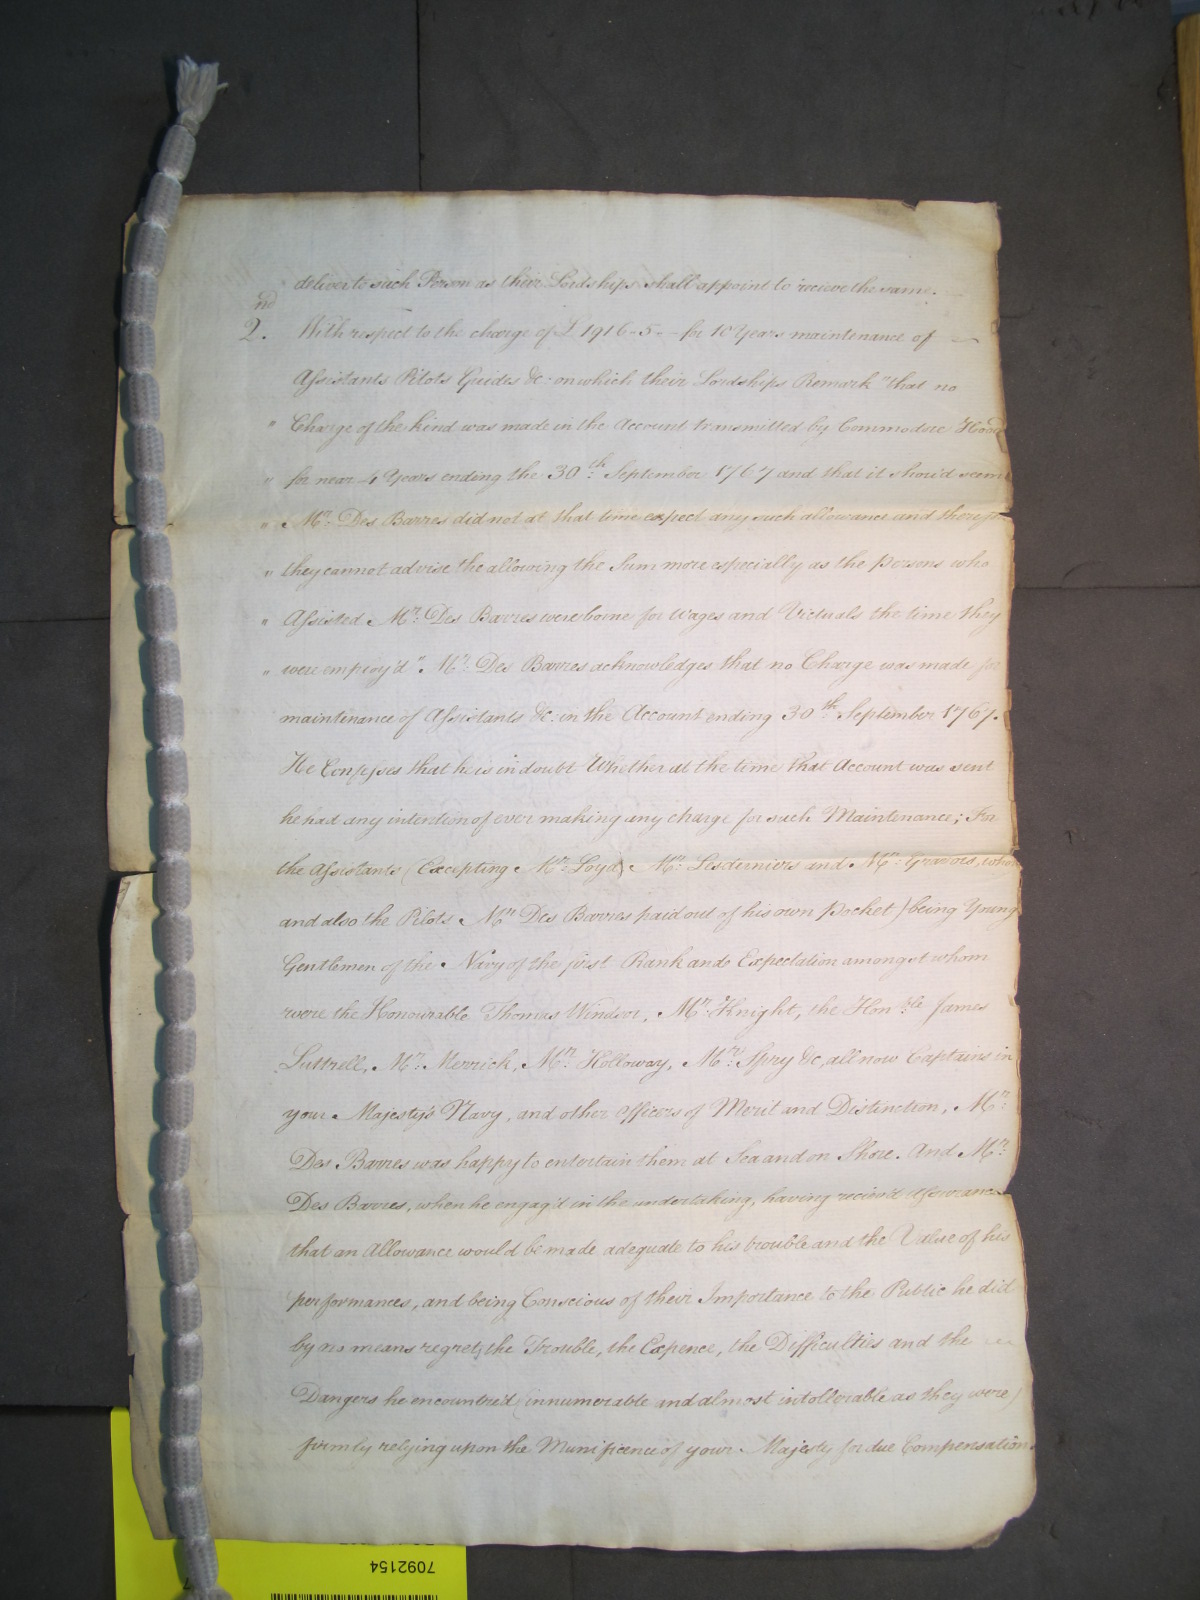 deliver to such Person as their Lordships shall appoint to recieve the same.
2.nd With respect to the charge of £1916-5-- for 10 Years maintenance of
Assistants Pilots Guides &c: on which their Lordships Remark "that no
" Charge of the kind was made in the Account transmitted by Commodore Hood
" for near 4 Years ending the 30th: September 1767 and that it shou'd seem
" Mr: Des Barres did not at that time expect any such allowance and therefore
" they cannot advise the allowing the Sum more especially as the Persons who
" Assisted Mr: Des Barres were borne for Wages and Victuals the time they
" were employ'd" Mr: Des Barres acknowledges that no Charge was made for
maintenance of Assistants &c: in the Account ending 30th: September 1767.
He Confesses that he is in doubt Whether at the time that Account was sent
he had any intention of ever making any charge for such Maintenance; For
the Assistants (Excepting Mr: Loyd, Mr: Lesderniers and Mr: Gravois, whom
and also the Pilots Mr: Des Barres paid out of his own Pocket) being Young
Gentlemen of the Navy of the first Rank and Expectation amongst whom
were the Honourable Thomas Windsor, Mr: Knight, the Hon:ble James
Luttrell, Mr: Merrick, Mr: Holloway, Mr: Spry &c, all now Captains in
your Majesty's Navy, and other Officers of Merit and Distinction, Mr:
Des Barres was happy to entertain them at Sea and on Shore. And Mr:
Des Barres, when he engag'd in the undertaking, having reciev'd Assurances
that an Allowance would be made adequate to his trouble and the Value of his
performances, and being Conscious of their Importance to the Public he did
by no means regret, the Trouble, the Expence, the Difficulties and the
Dangers he encounter'd (innumerable and almost intollerable as they were)
firmly relying upon the Munificence of your Majesty for due Compensation.
7092154